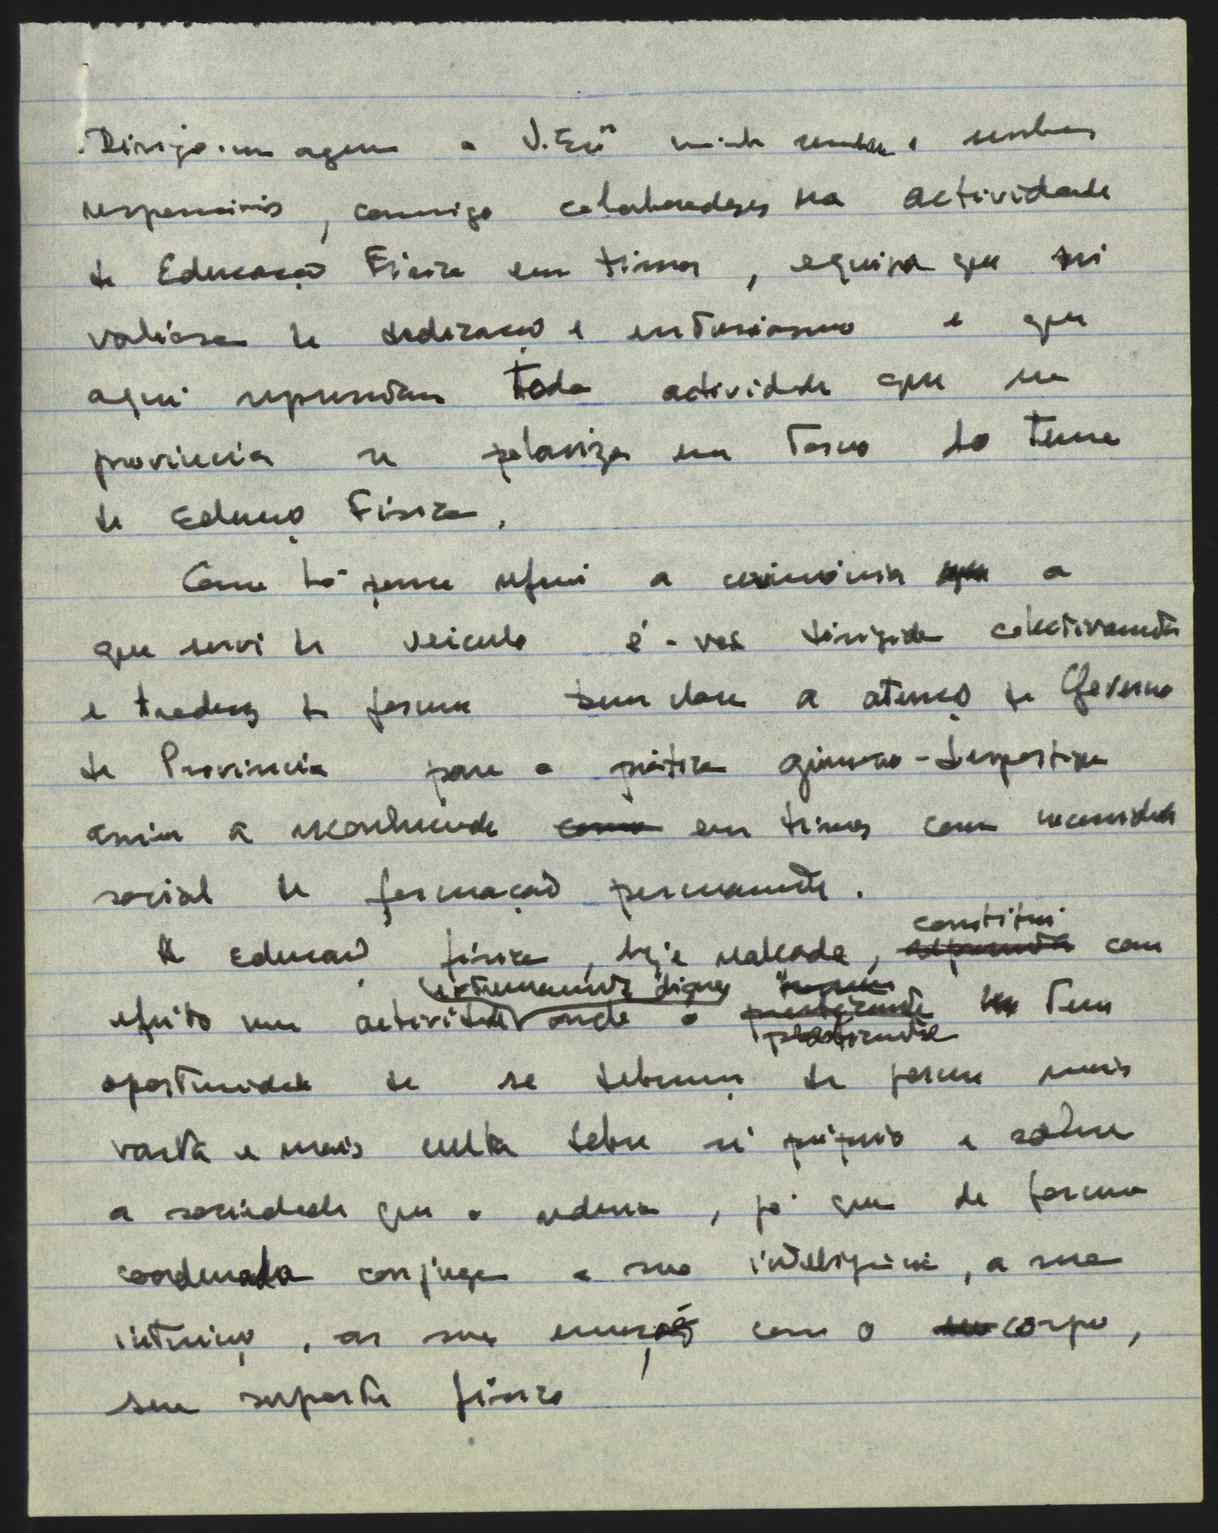 Dirijo-me agora a V. Exª minhas senhoras e senhores
responsáveis, comigo colaboradores na actividade
de Educação Física em Timor, equipa que sei
valiosa de dedicação e entusiasmo e que
aqui representam toda actividade que na
província se polariza em torno do tema
de Educação Física.
Como há pouco referi a cerimónia a
que servi de veículo é-vos dirigida colectivamente
e traduz de forma bem clara a atenção do Governo
da Província para a prática gimno-desportiva
assim a reconhecendo como em Timor como necessidade
social de formação permanente.
A educação física, hoje realçada, constitui com
efeito uma actividade extremamente digna onde o praticante tem
oportunidade de se debruçar de forma mais
vasta e mais culta sobre si próprio e sobre
a sociedade que o rodeia, já que de forma
coordenada conjuga a sua inteligência, a sua
intuição, as suas emoções com o corpo,
seu suporte físico